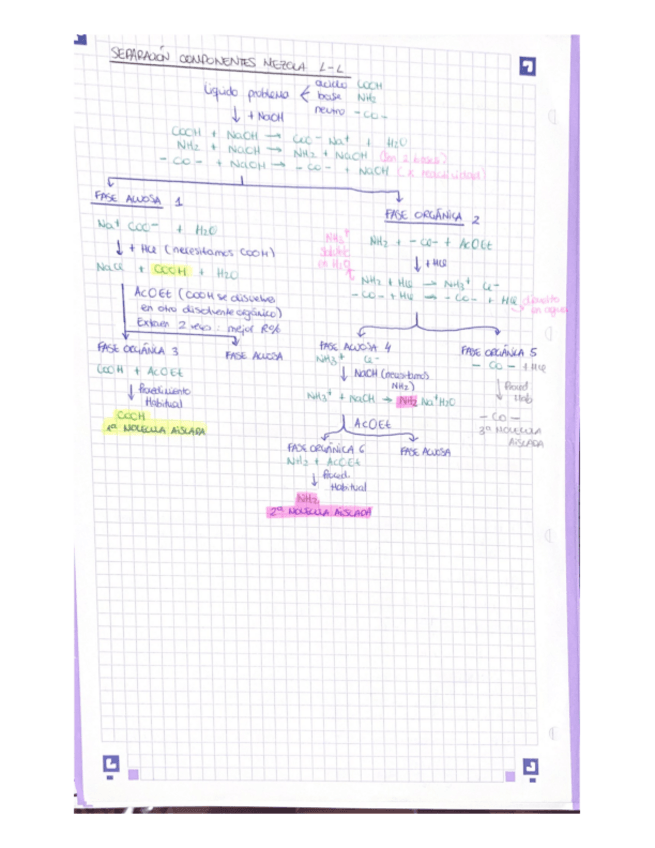 SEPARACIÓN COMPONENTES MEZCLA L-L
Líquido problema
ácido COOH
base NH2
neutro -CO-
↓ + NaOH
COOH + NaOH → COO- Na+ + H2O
NH2 + NaOH → NH2 + NaOH (son 2 bases)
-CO- + NaOH → -CO- + NaOH ( reactividad)
FASE ACUOSA 1
Na+ COO- + H2O
↓ + HCl (necesitamos COOH)
NaCl + COOH + H2O
AcOEt (COOH se disuelve
en otro disolvente orgánico)
Extraen 2 veces: mejor R%
FASE ORGÁNICA 3
COOH + AcOEt
↓ Procedimiento
Habitual
COOH
1ª MOLÉCULA AISLADA
FASE ACUOSA
FASE ORGÁNICA 2
NH2 + -CO- + AcOEt
↓ + HCl
NH3+
soluble
en H2O
NH2 + HCl → NH3+ Cl-
-CO- + HCl → -CO- + HCl
disuelto
en agua
FASE ACUOSA 4
NH3+ Cl-
↓ NaOH (necesitamos
NH2)
NH3+ + NaOH → NH2 Na+ H2O
AcOEt
FASE ORGÁNICA 6
NH2 + AcOEt
↓ Proced
Habitual
NH2
2ª MOLÉCULA AISLADA
FASE ACUOSA
FASE ORGÁNICA 5
-CO- + HCl
↓ Proced
Hab
-CO-
3ª MOLÉCULA
AISLADA